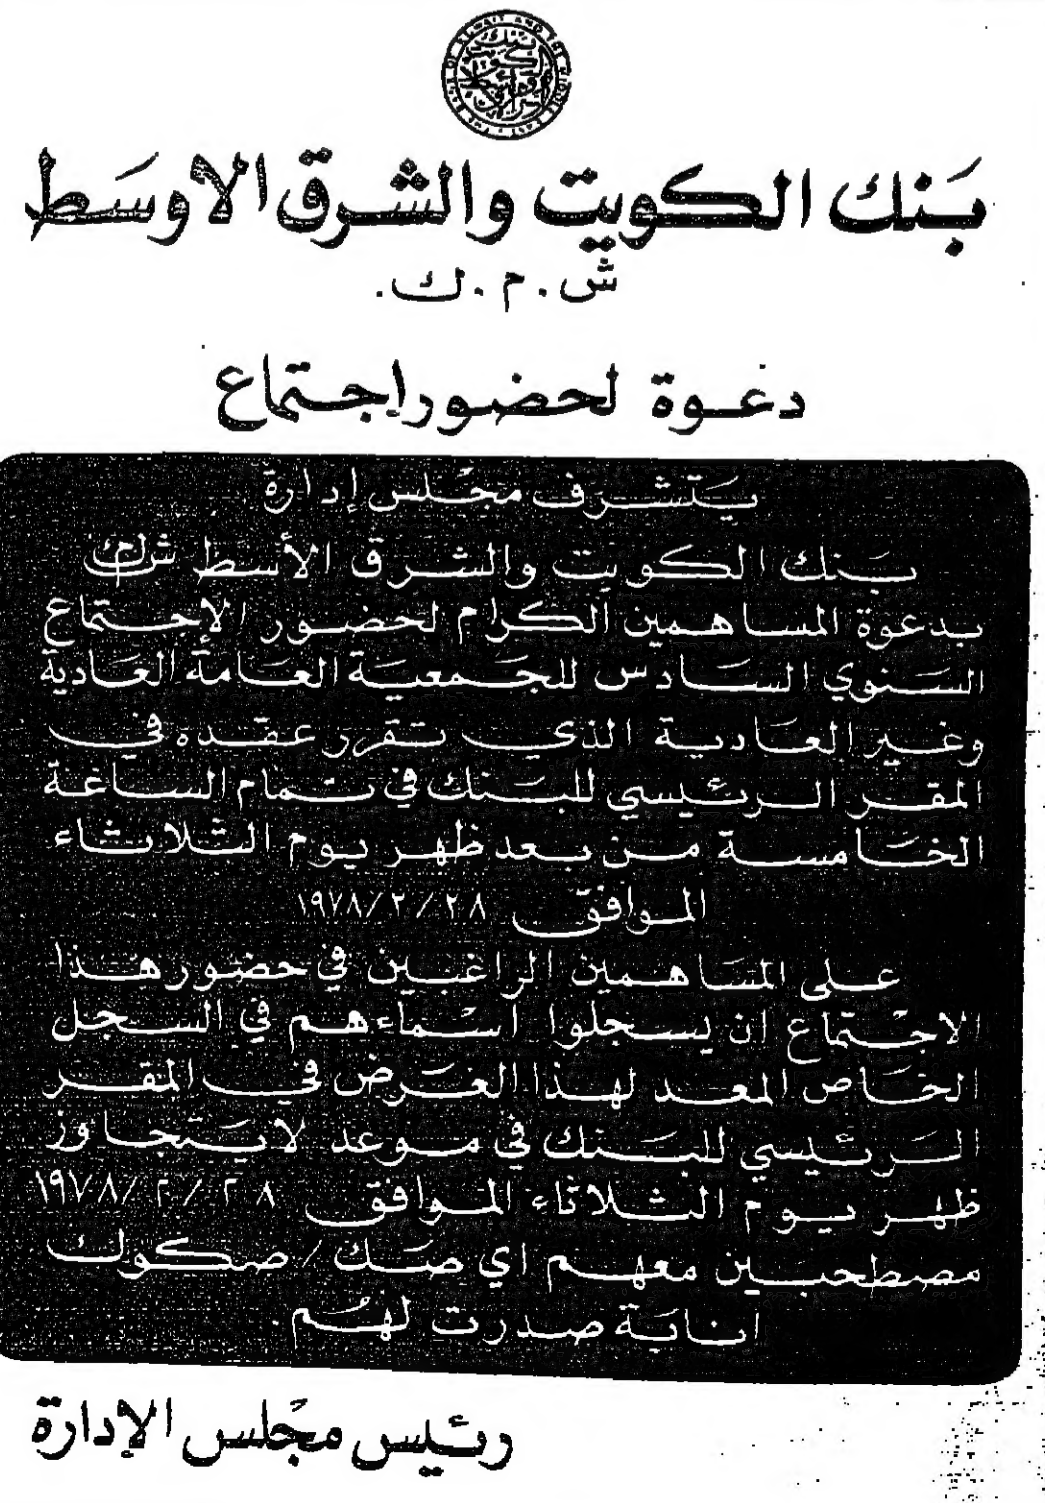 THE BANK OF KUWAIT AND THE MIDDLE EAST
بنك الكويت والشرق الاوسط
ش.م.ك.
دعوة لحضور إجتماع
يتشرف مجلس إدارة
بنك الكويت والشرق الأسط ش م ك
بدعوة المساهمين الكرام لحضور الإجتماع
السنوي السادس للجمعية العامة العادية
وغير العادية الذي تقرر عقده في
المقر الرئيسي للبنك في تمام الساعة
الخامسة من بعد ظهر يوم الثلاثاء
الموافق ١٩٧٨/٢/٢٨
على المساهمين الراغبين في حضور هذا
الاجتماع ان يسجلوا اسماءهم في السجل
الخاص المعد لهذا الغرض في المقر
الرئيسي للبنك في موعد لا يتجاوز
ظهر يوم الثلاثاء الموافق ١٩٧٨/٢/٢٨
مصطحبين معهم اي صك / صكوك
انابة صدرت لهم.
رئيس مجلس الإدارة